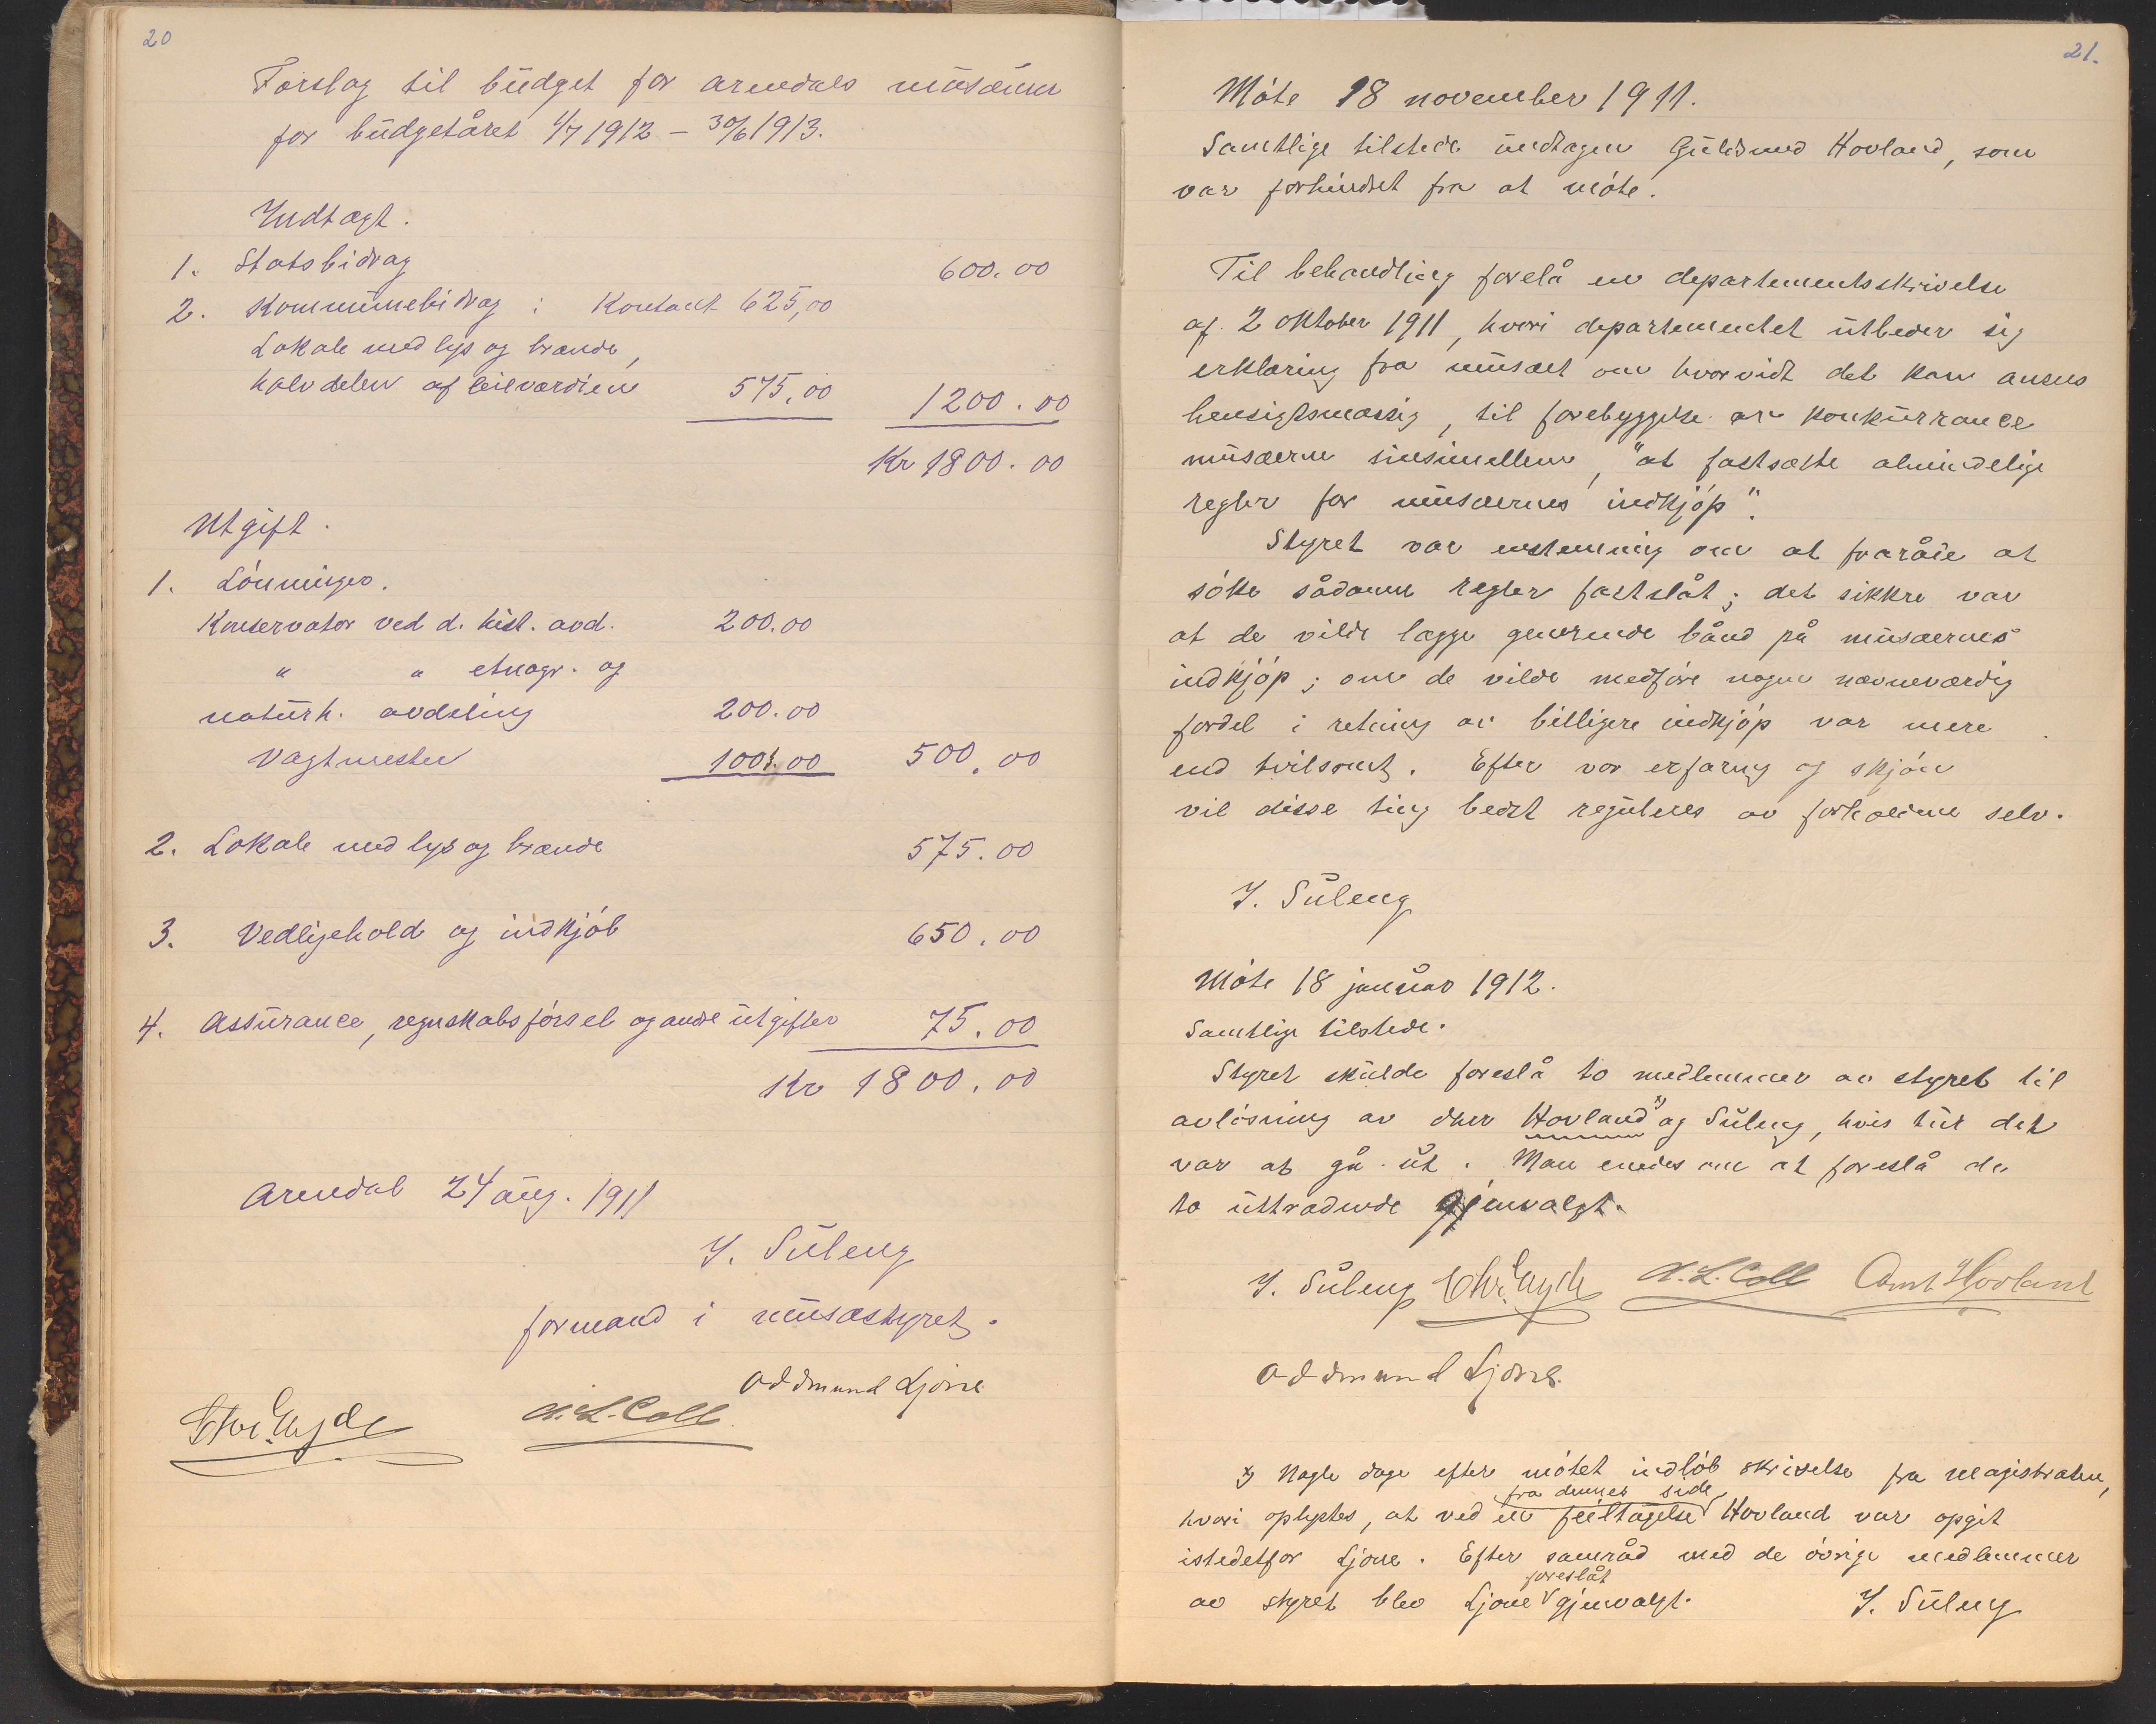 20
Forslag til budget for arendals musæum
for budgetåret 1/7 1912 - 30/6 1913.
Indtægt.
1. Statsbidrag 600.00
2. Kommunebidrag : Kontant 625,00
Lokale med lys og brænde,
halvdelen af leieværdien 575,00 1200.00
Kr 1800.00
Utgift.
1. Lönninger.
Konservator ved d. hist. avd. 200.00
" " etnogr. og
naturh. avdeling 200.00
Vagtmester 100.00 500.00
2. Lokale med lys og brænde 575.00
3. Vedligehold og indkjöb 650.00
4. Assurance, regnskabsförsel og andre utgifter 75.00
Kr 1800.00
Arendal 24 aug. 1911
I. Suleng
formand i musæstyret.
Oddmund Ljone
Chr. Eyde A. L. Coll.
21.
Möte 18 november 1911.
Samtlige tilstede undtagen Guldsmed Hovland, som
var forhindret fra at möte.
Til behandling forelå en departementsskrivelse
af 2 oktober 1911, hvori departementet utbeder sig
erklæring fra musæet om hvorvidt det kan ansees
hensigtsmæssig, til forebyggelse av konkurrance
musæerne sinimellem, "at fastsætte almindelige
regler for musæernes indkjöp".
Styret var enstemmig om at fraråde at
söke sådanne regler fastslåt; det sikkre var
at de vilde lægge generende bånd på musæernes
indkjöp; om de vilde medföre nogen nævneværdig
fordel i retning av billigere indkjöp var mere
end tvilsomt. Efter vor erfaring og skjön
vil disse ting bedst reguleres av forholdene selv.
I. Suleng
Möte 18 januar 1912.
Samtlige tilstede.
Styret skulde foreslå to medlemmer av styret til
avlösning av dhrr Hovland x) og Suleng, hvis tur det
var at gå ut. Man enedes om at foreslå de
to uttrædende gjenvalgt.
I. Suleng Chr. Eyde A. L. Coll Amt Hovland
Oddmund Ljone.
x) Nogle dage efter mötet indlöb skrivelse fra magistraten,
hvori oplystes, at ved en feiltagelse fra dennes side Hovland var opgit
istedetfor Ljone. Efter samråd med de övrige medlemmer
av styret blev Ljone foreslåt gjenvalgt. I. Suleng